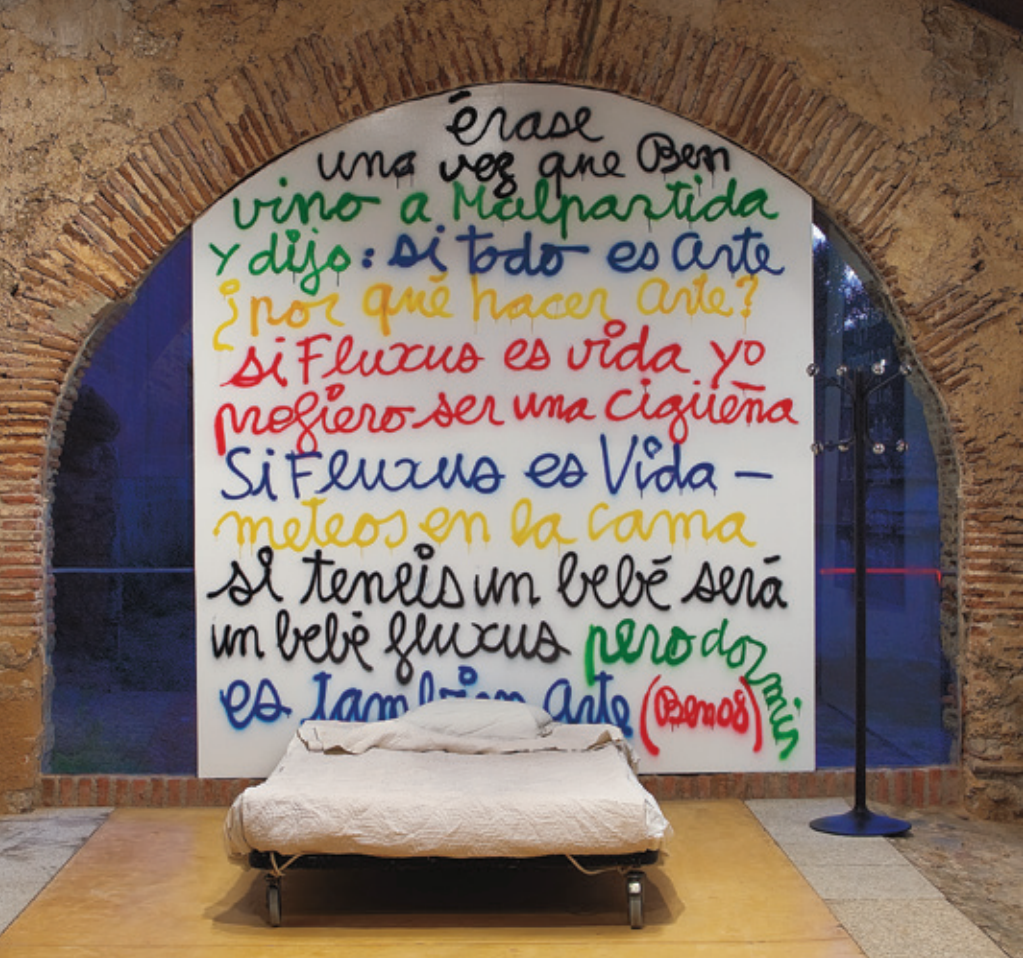 érase
una vez que Ben
vino a Malpartida
y dijo: si todo es Arte
¿por qué hacer Arte?
si Fluxus es vida yo
prefiero ser una cigüeña
Si Fluxus es Vida –
meteos en la cama
si tenéis un bebé será
un bebé fluxus pero dormir
es también arte (Ben08)